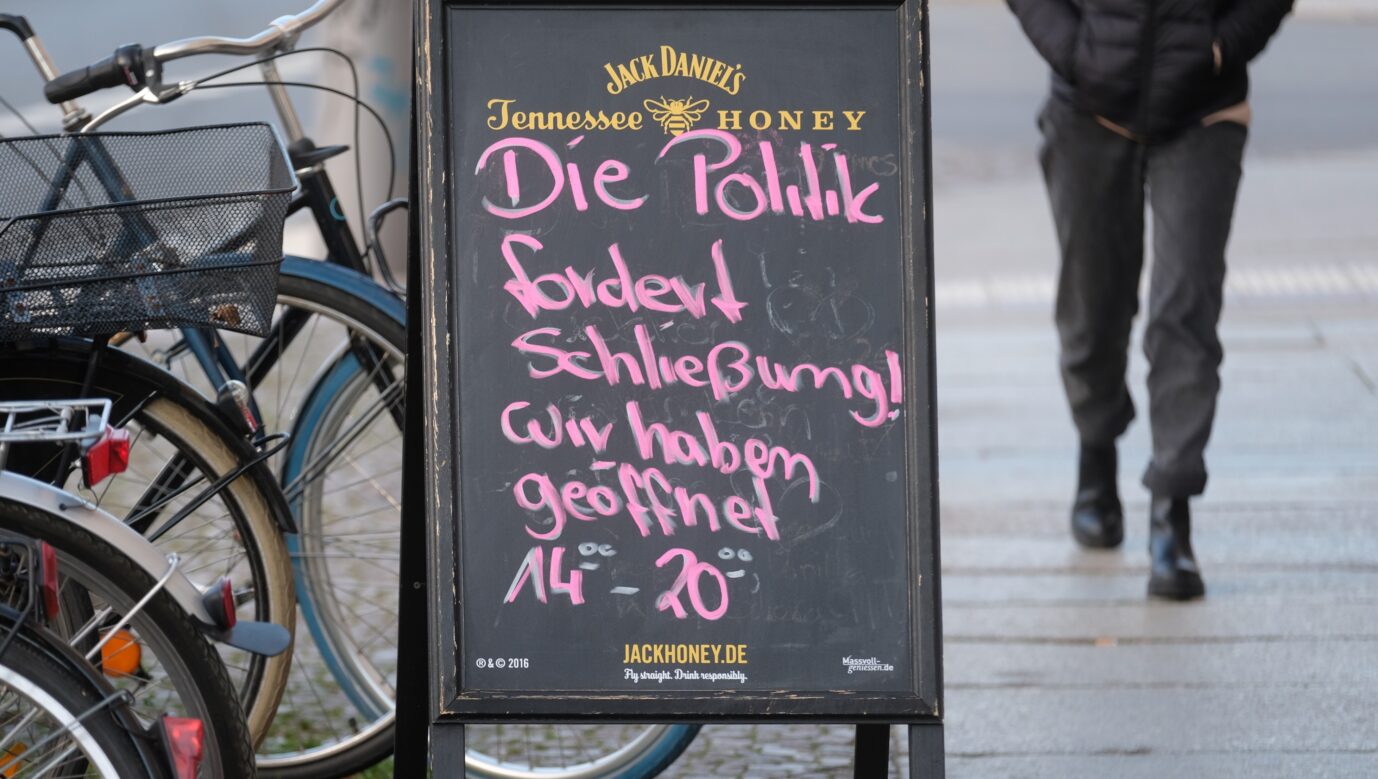 JACK DANIEL'S
Tennessee HONEY
Die Politik
fordert
Schließung!
wir haben
geöffnet
14°° - 20°°
JACKHONEY.DE
Fly straight. Drink responsibly.
® & © 2016
Massvoll-
geniessen.de